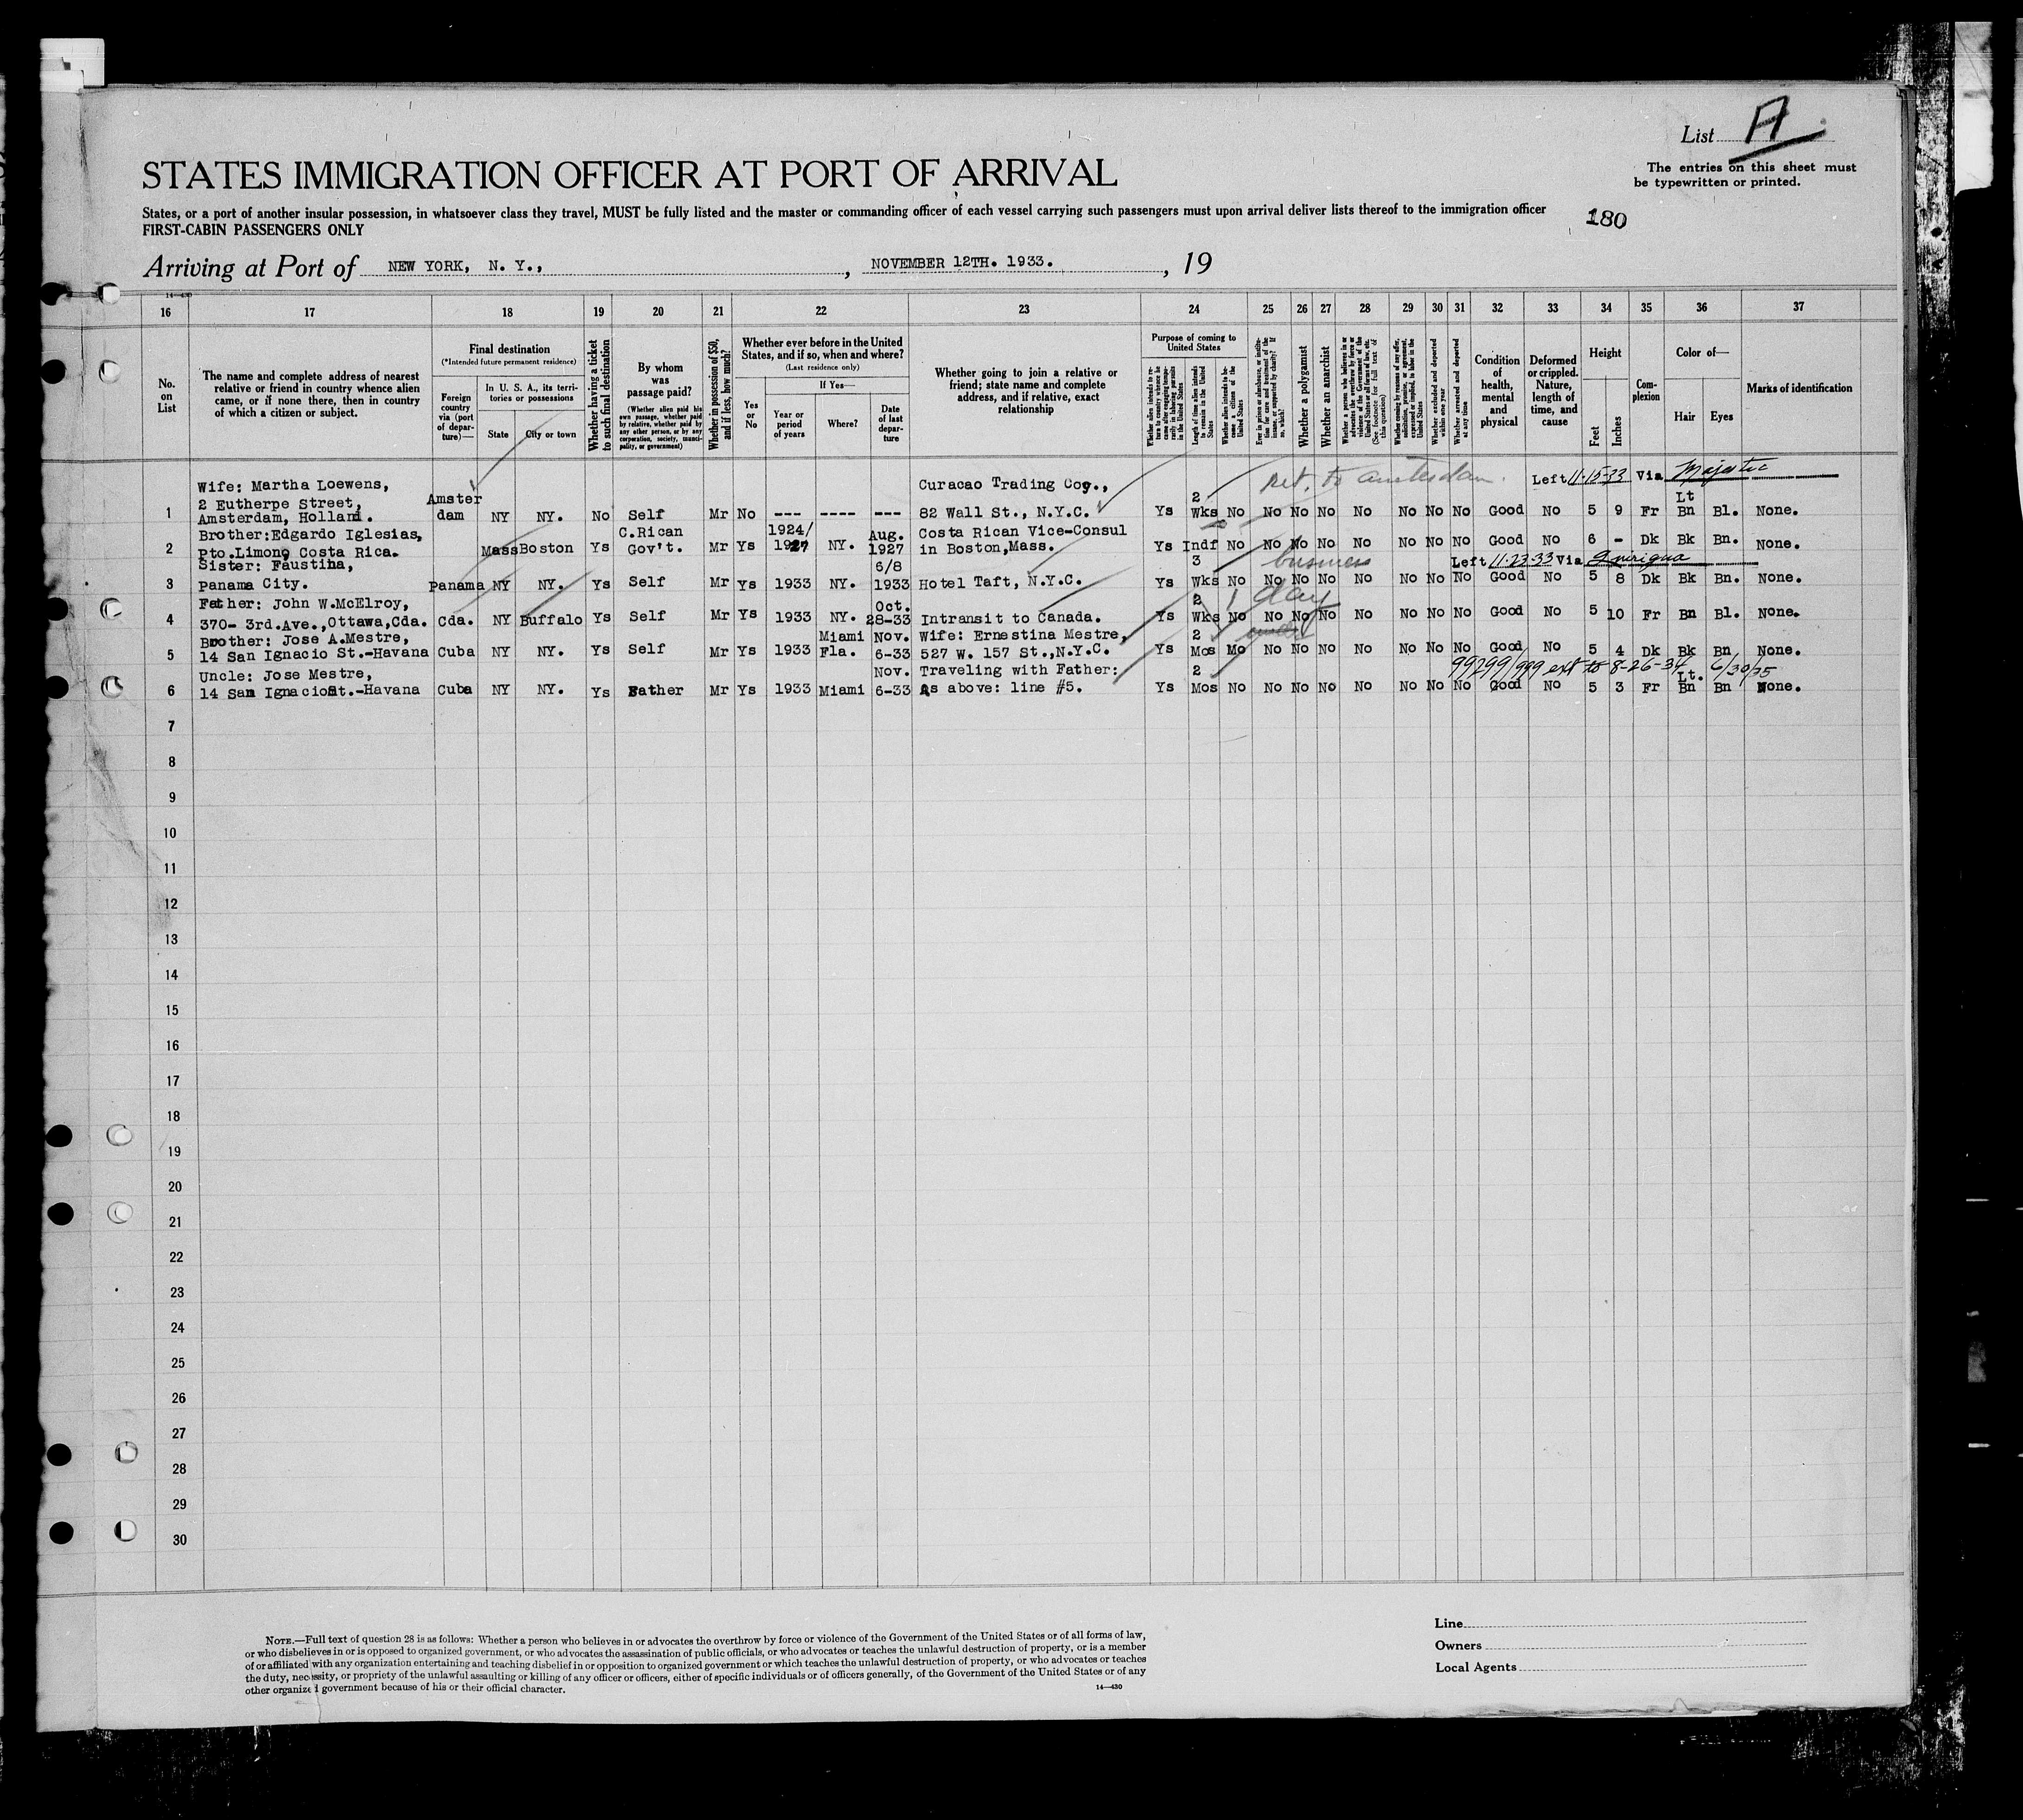 List A
The entries on this sheet must
be typewritten or printed.
STATES IMMIGRATION OFFICER AT PORT OF ARRIVAL
States, or a port of another insular possession, in whatsoever class they travel, MUST be fully listed and the master or commanding officer of each vessel carrying such passengers must upon arrival deliver lists thereof to the immigration officer
FIRST-CABIN PASSENGERS ONLY
180
Arriving at Port of NEW YORK, N. Y., , NOVEMBER 12TH. 1933. , 19
14—430
16 17 18 19 20 21 22 23 24 25 26 27 28 29 30 31 32 33 34 35 36 37
No. on List
The name and complete address of nearest relative or friend in country whence alien came, or if none there, then in country of which a citizen or subject.
Final destination
(*Intended future permanent residence)
Foreign country via (port of departure)—
In U. S. A., its territories or possessions
State
City or town
Whether having a ticket to such final destination
By whom was passage paid?
(Whether alien paid his own passage, whether paid by relative, whether paid by any other person, or by any corporation, society, municipality, or government)
Whether in possession of $50, and if less, how much?
Whether ever before in the United States, and if so, when and where?
(Last residence only)
Yes or No
If Yes—
Year or period of years
Where?
Date of last departure
Whether going to join a relative or friend; state name and complete address, and if relative, exact relationship
Purpose of coming to United States
Whether alien intends to return to country whence he came after engaging temporarily in laboring pursuits in the United States
Length of time alien intends to remain in the United States
Whether alien intends to become a citizen of the United States
Ever in prison or almshouse, or institution for care and treatment of the insane, or supported by charity? If so, which?
Whether a polygamist
Whether an anarchist
Whether a person who believes in or advocates the overthrow by force or violence of the Government of the United States or all forms of law, etc. (See footnote for full text of this question)
Whether coming by reasons of any offer, solicitation, promise, or agreement, expressed or implied, to labor in the United States
Whether excluded and deported within one year
Whether arrested and deported at any time
Condition of health, mental and physical
Deformed or crippled. Nature, length of time, and cause
Height
Feet
Inches
Complexion
Color of—
Hair
Eyes
Marks of identification
ret. to Amsterdam. Left 11-15-33 Via Majestic
Wife: Martha Loewens, Curacao Trading Coy.,
2 Eutherpe Street, Amster 2 Lt
1 Amsterdam, Holland. dam NY NY. No Self Mr No --- ---- --- 82 Wall St., N.Y.C. Ys Wks No No No No No No No No Good No 5 9 Fr Bn Bl. None.
Brother:Edgardo Iglesias, C.Rican 1924/ Aug. Costa Rican Vice-Consul
2 Pto.Limon, Costa Rica. Mass Boston Ys Gov't. Mr Ys 1927 NY. 1927 in Boston,Mass. Ys Indf No No No No No No No No Good No 6 - Dk Bk Bn. None.
Sister: Faustina, 6/8 3 business Left 11-23-33 Via Quirigua
3 Panama City. Panama NY NY. Ys Self Mr Ys 1933 NY. 1933 Hotel Taft, N.Y.C. Ys Wks No No No No No No No No Good No 5 8 Dk Bk Bn. None.
Father: John W.McElroy, Oct. 2 1 day
4 370- 3rd.Ave.,Ottawa,Cda. Cda. NY Buffalo Ys Self Mr Ys 1933 NY. 28-33 Intransit to Canada. Ys Wks No No No No No No No No Good No 5 10 Fr Bn Bl. None.
Brother: Jose A.Mestre, Miami Nov. Wife: Ernestina Mestre, 2
5 14 San Ignacio St.-Havana Cuba NY NY. Ys Self Mr Ys 1933 Fla. 6-33 527 W. 157 St.,N.Y.C. Ys Mos No No No No No No No No Good No 5 4 Dk Bk Bn None.
99299/999 ext to 8-26-34 6/30/35
Uncle: Jose Mestre, Nov. Traveling with Father: 2 Lt.
6 14 San Ignacio St.-Havana Cuba NY NY. Ys Father Mr Ys 1933 Miami 6-33 As above: line #5. Ys Mos No No No No No No No No Good No 5 3 Fr Bn Bn None.
7
8
9
10
11
12
13
14
15
16
17
18
19
20
21
22
23
24
25
26
27
28
29
30
NOTE.—Full text of question 28 is as follows: Whether a person who believes in or advocates the overthrow by force or violence of the Government of the United States or of all forms of law,
or who disbelieves in or is opposed to organized government, or who advocates the assassination of public officials, or who advocates or teaches the unlawful destruction of property, or is a member
of or affiliated with any organization entertaining and teaching disbelief in or opposition to organized government or which teaches the unlawful destruction of property, or who advocates or teaches
the duty, necessity, or propriety of the unlawful assaulting or killing of any officer or officers, either of specific individuals or of officers generally, of the Government of the United States or of any
other organized government because of his or their official character.
14—430
Line
Owners
Local Agents